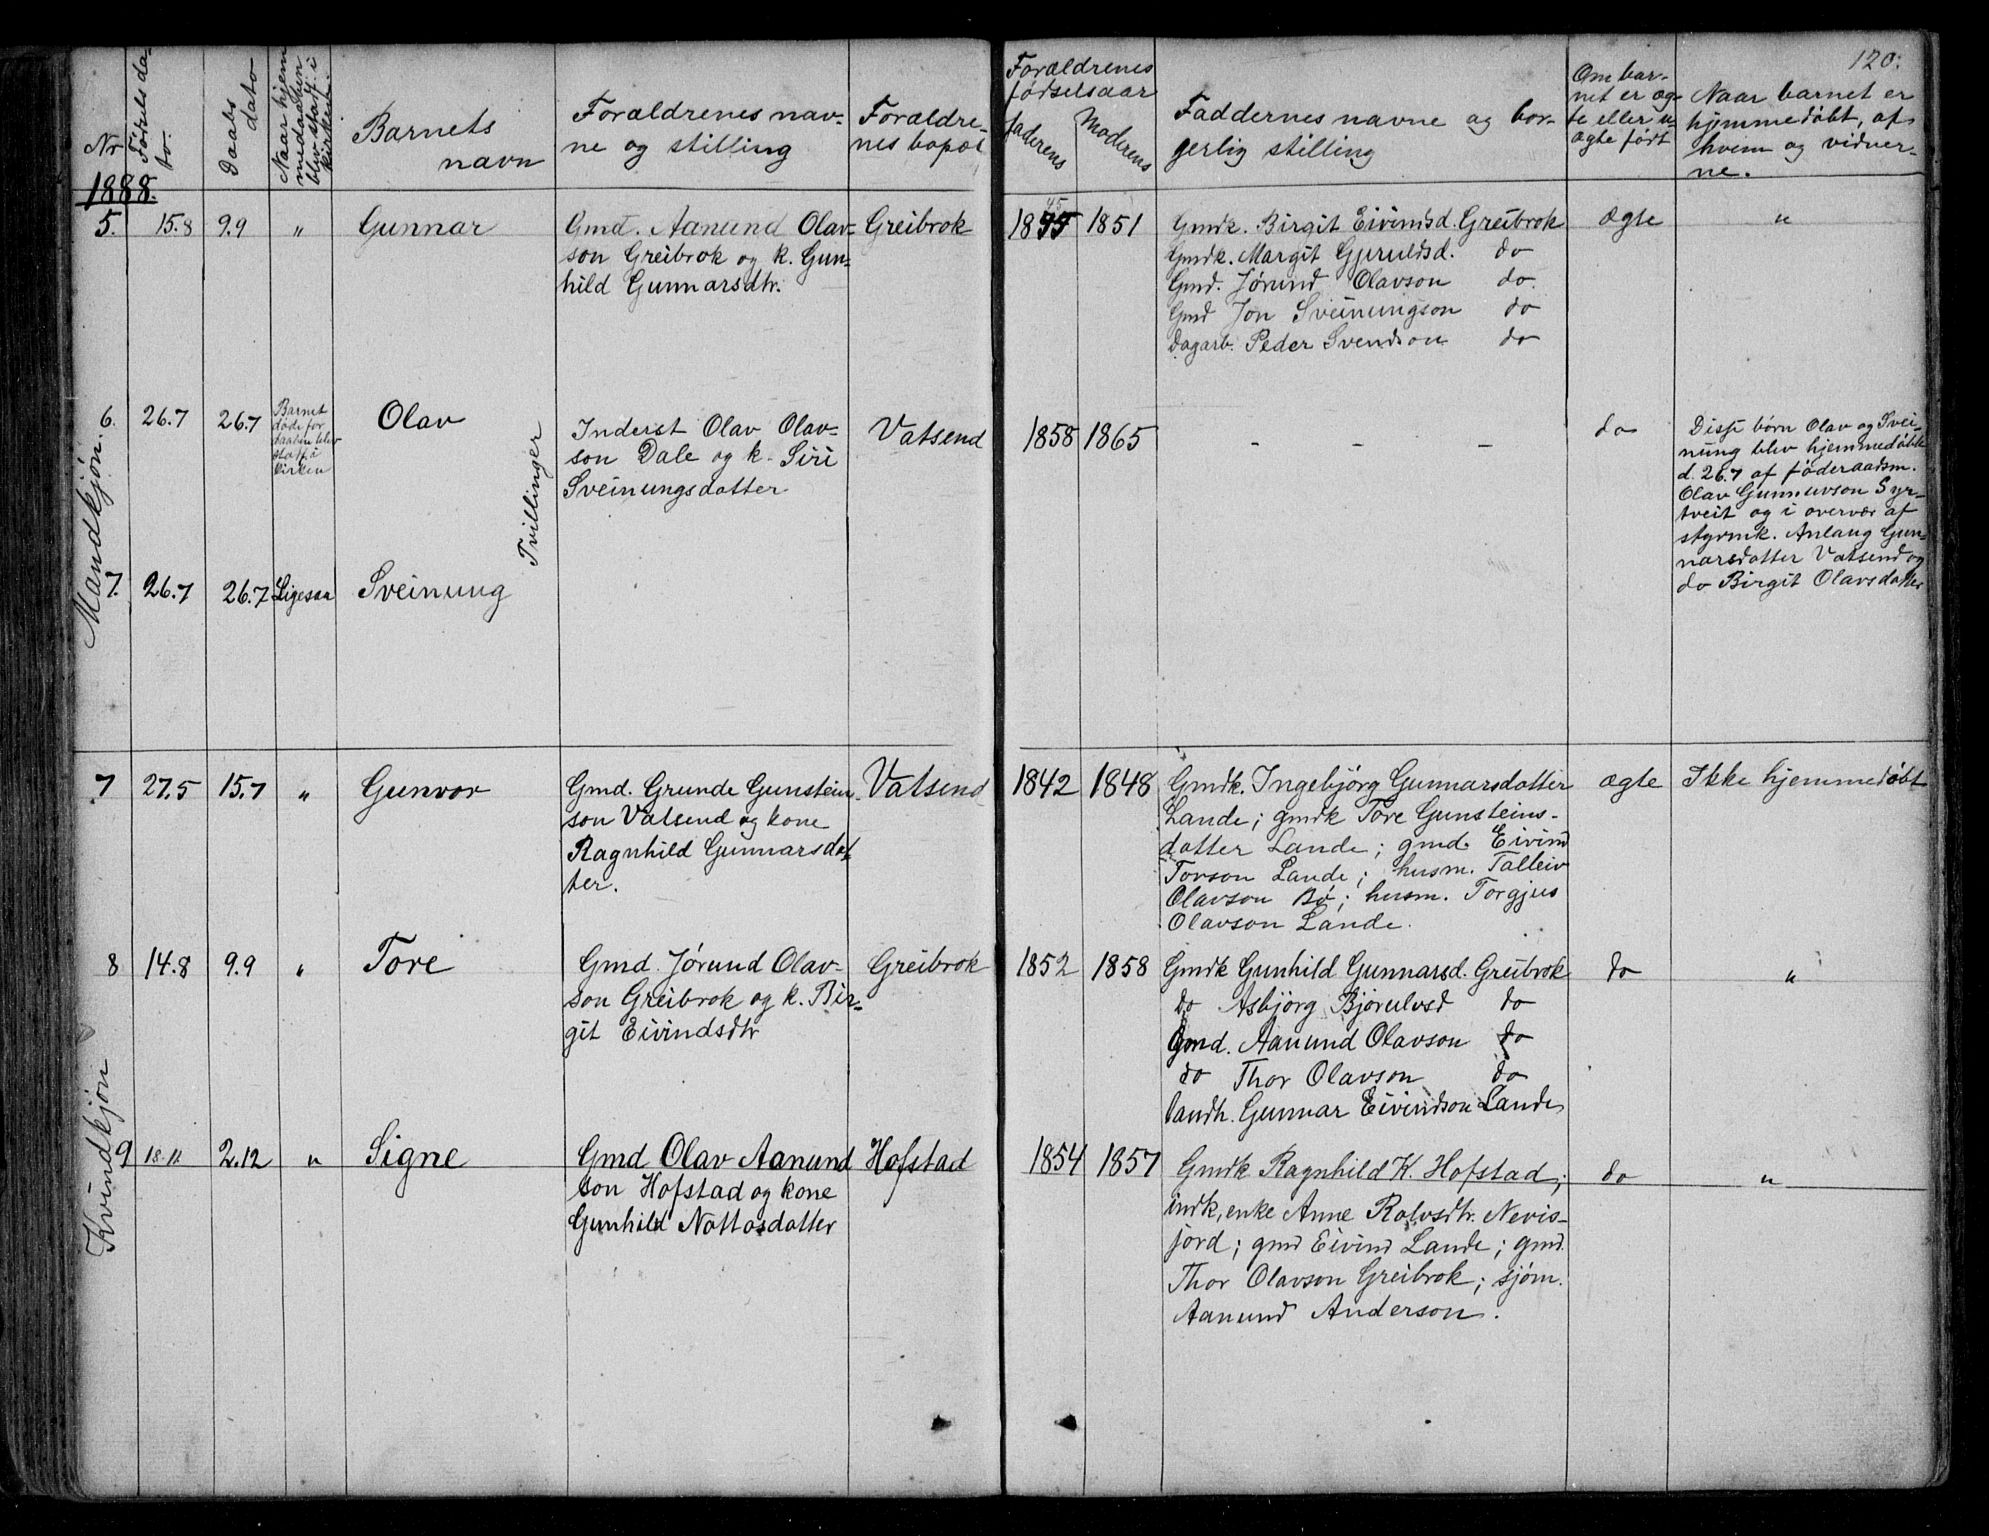 120.
Nr
Fødselsda-
to.
Daabs
dato
Naar hjem
medaaben
blev stadf. i
kirken.
Barnets
navn
Forældrenes nav-
ne og stilling
Forældre-
nes bopæl
Forældrenes
fødselsaar
faderens
Moderens
Faddernes navne og bor-
gerlig stilling
Om bar-
net er æg-
te eller u-
ægte født
Naar barnet er
hjemmedøbt, af
hvem og vidner-
ne.
1888.
Mandkjøn.
5. 15.8 9.9 " Gunnar
Gmd. Aanund Olav-
son Greibrok og k. Gun-
hild Gunnarsdtr.
Greibrok
45
1855 1851
Gmdk. Birgit Eivindsd. Greibrok
Gmdk. Margit Gjeruldsd. do
Gmd. Jørund Olavson do.
Gmd Jon Sveinungson do
Dagarb. Peder Svendson do
ægte "
6. 26.7 26.7
Barnet
døde før
daaben blev
stadf. i
kirken
Olav
Tvillinger
Inderst Olav Olav-
son Dale og k. Siri
Sveinungsdatter
Vatsend
1858 1865
- - -
do
Disse børn Olav og Svei-
nung blev hjemmedøbte
d. 26.7 af føderaadsm.
Olav Gunnuvson Syr-
tveit og i overvær af
styrmk. Anlaug Gun-
narsdatter Vatsend og
do Birgit Olavsdatter
7. 26.7 26.7 Ligesaa Sveinung
Kvindkjøn
7 27.5 15.7 " Gunvor
Gmd. Grunde Gunstein-
son Vatsend og kone
Ragnhild Gunnarsdat-
ter.
Vatsend
1842 1848
Gmdk. Ingebjørg Gunnarsdatter
Lande; gmdk Tore Gunsteins-
datter Lande; gmd. Eivind
Torson Lande; husm. Talleiv
Olavson Bø; husm. Torgjus
Olavson Lande.
ægte Ikke hjemmedøbt
8 14.8 9.9 " Tore
Gmd. Jørund Olav-
son Greibrok og k. Bir-
git Eivindsdtr
Greibrok
1852 1858
Gmdk Gunhild Gunnarsd. Greibrok
do Asbjørg Bjørulvsd do
Gmd. Aanund Olavson do
do Thor Olavson do
landh. Gunnar Eivindson Lande
do "
9 18.11 2.12 " Signe
Gmd Olav Aanund
son Hofstad og kone
Gunhild Nottosdatter
Hofstad
1854 1857
Gmdk Ragnhild K. Hofstad;
indk, enke Anne Rolvsdtr. Nevis-
jord; gmd Eivind Lande; gmd.
Thor Olavson Greibrok; sjøm.
Aanund Anderson.
do "